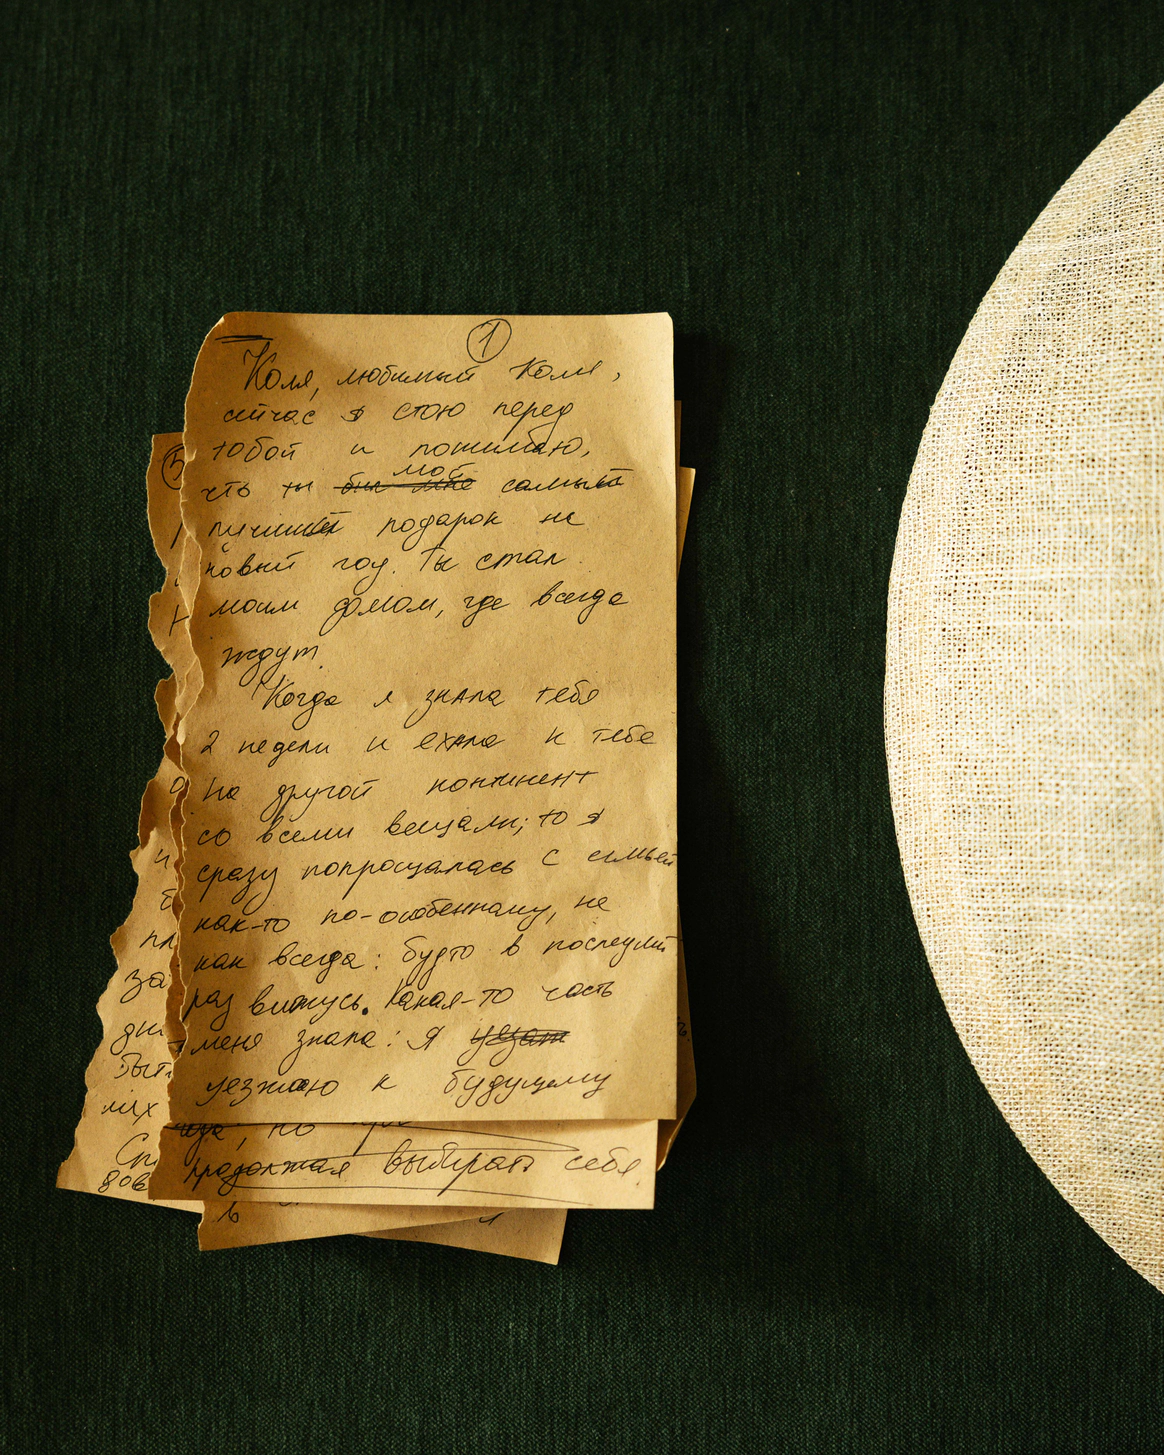 1
Коля, любимый Коля,
сейчас я стою перед
тобой и понимаю,
мой
что ты был мне самый
лучший подарок на
новый год. Ты стал
моим домом, где всегда
ждут.
Когда я знала тебя
2 недели и ехала к тебе
на другой континент
со всеми вещами; то я
сразу попрощалась с семьей
как-то по-особенному, не
как всегда: будто в последний
раз вижусь. Какая-то часть
меня знала: я уезжаю
уезжаю к будущему
но
продолжая выбирать себя.
5
за
дни
быть
них